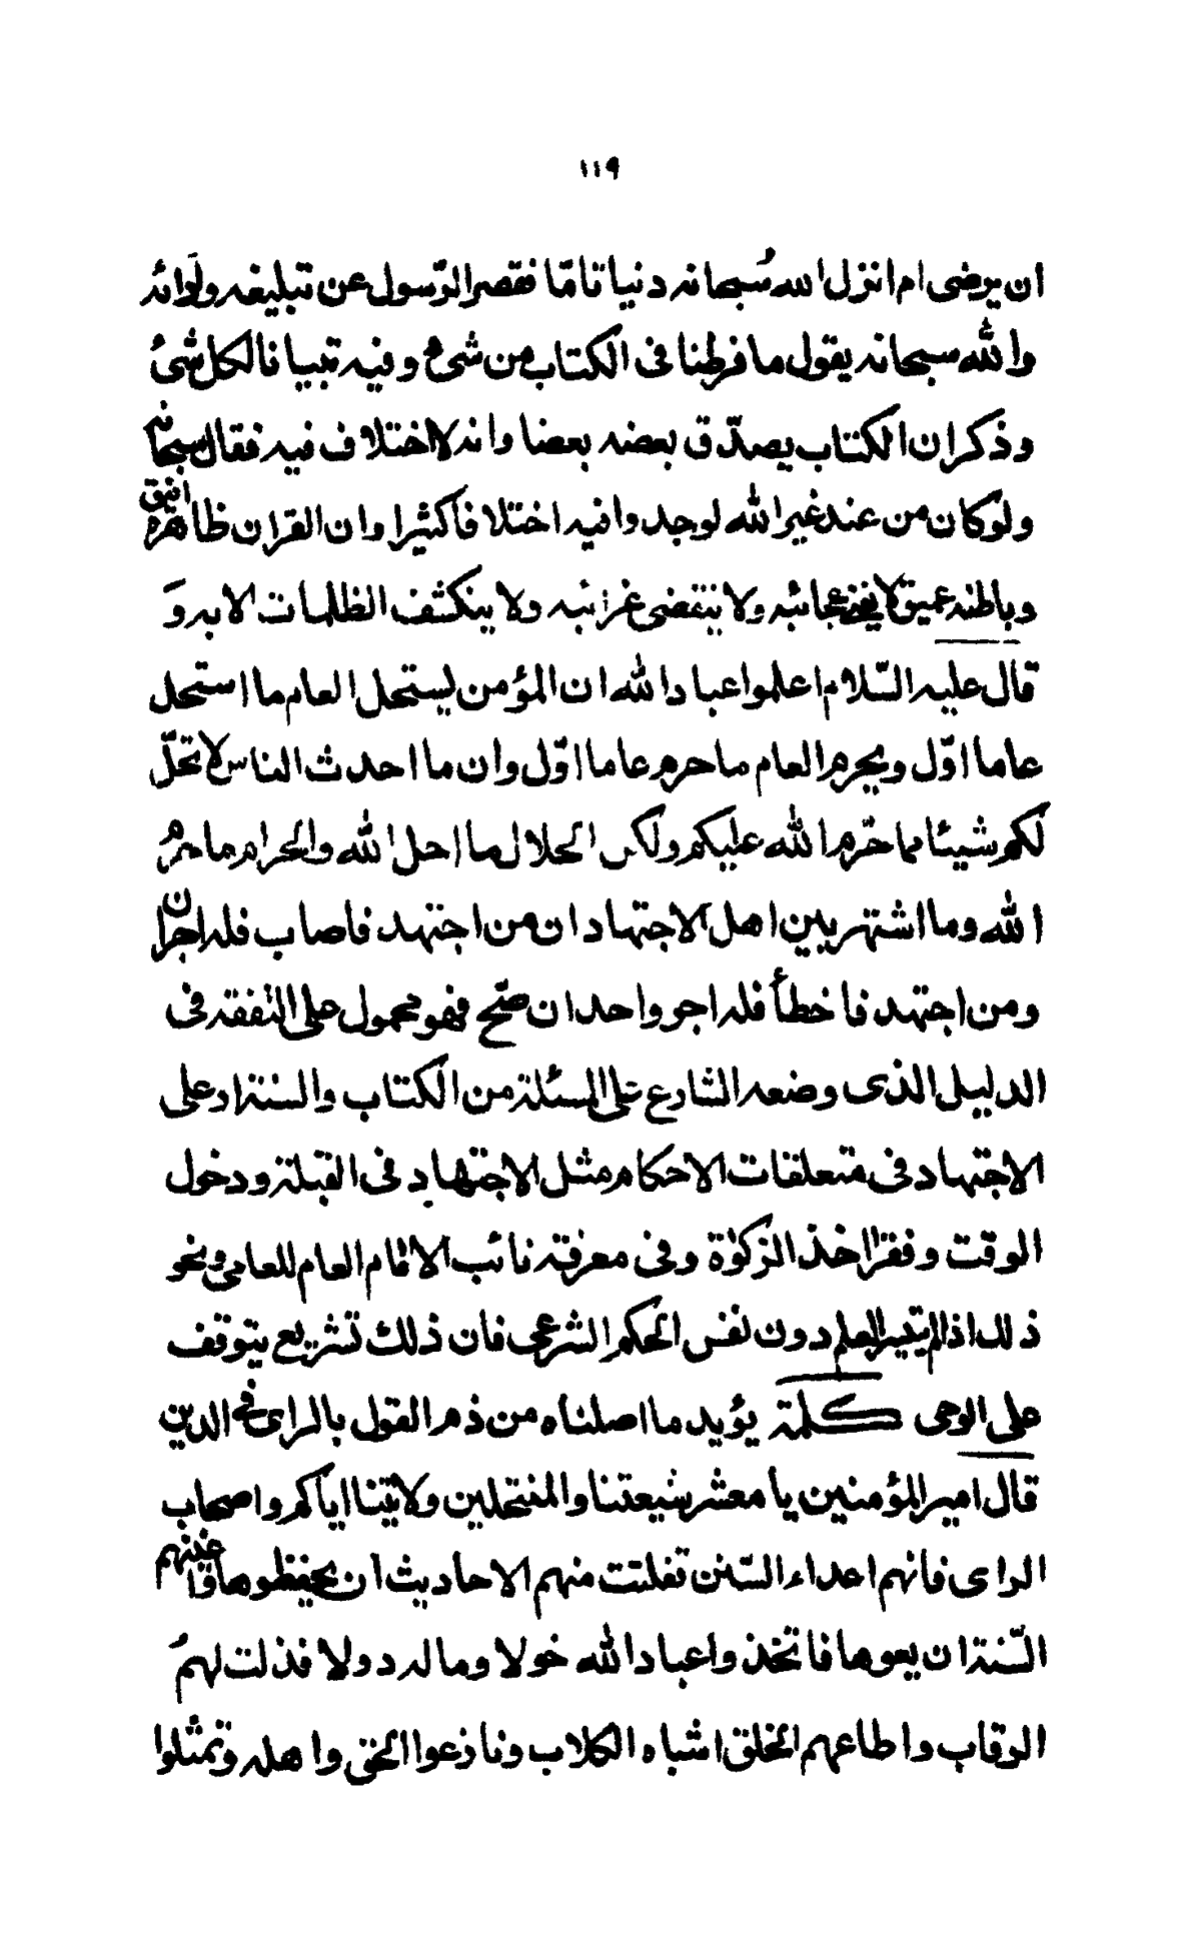 ١١٩
ان يرضى ام انزل الله سُبحانه دنيا تامّا فقصر الرّسول عن تبليغه ولدائه
والله سبحانه يقول ما فرطنا فى الكتاب من شئ وفيه تبيانا لكل شئ
وذكر ان الكتاب يصدّق بعضه بعضا وانه لا اختلاف فيه فقال سبحانه
ولو كان من عند غير الله لوجدوا فيه اختلافا كثيرا وان القران ظاهره انيق
وباطنه عميق لا يفنى عجائبه ولا ينقضى غرائبه ولا ينكشف الظلمات الا به وَ
قال عليه السّلام اعلموا عباد الله ان المؤمن ليستحل العام ما استحل
عاما اوّل ويحرم العام ما حرم عاما اوّل وان ما احدث الناس لا تحلّ
لكم شيئا مما حّرم الله عليكم ولكن الحلال ما احل الله والحرام ما حرم
الله وما اشتهر بين اهل الاجتهاد ان من اجتهد فاصاب فله اجران
ومن اجتهد فاخطأ فله اجر واحد ان صّح فهو محمول على التفقه فى
الدليل الذى وضعه الشارع على المسئلة من الكتاب والسنة او على
الاجتهاد فى متعلقات الاحكام مثل الاجتهاد فى القبلة ودخول
الوقت وفقر اخذ الزكوة وفى معرفة نائب الامام العام للعامى ونحو
ذلك اذا لم يتيسر العلم دون نفس الحكم الشرعى فان ذلك تشريع يتوقف
على الوحى كلمة يؤيد ما اصلناه من ذم القول بالراى فى الدين
قال امير المؤمنين يا معشر شيعتنا والمنتحلين ولايتنا اياكم واصحاب
الراى فانهم اعداء السّنن تفلتت منهم الاحاديث ان يحفظوها واعيتهم
السّنة ان يعوها فاتخذوا عباد الله خولا وماله دولا فذلت لهم
الرقاب واطاعهم الخلق اشباه الكلاب ونازعوا الحق واهله وتمثلوا